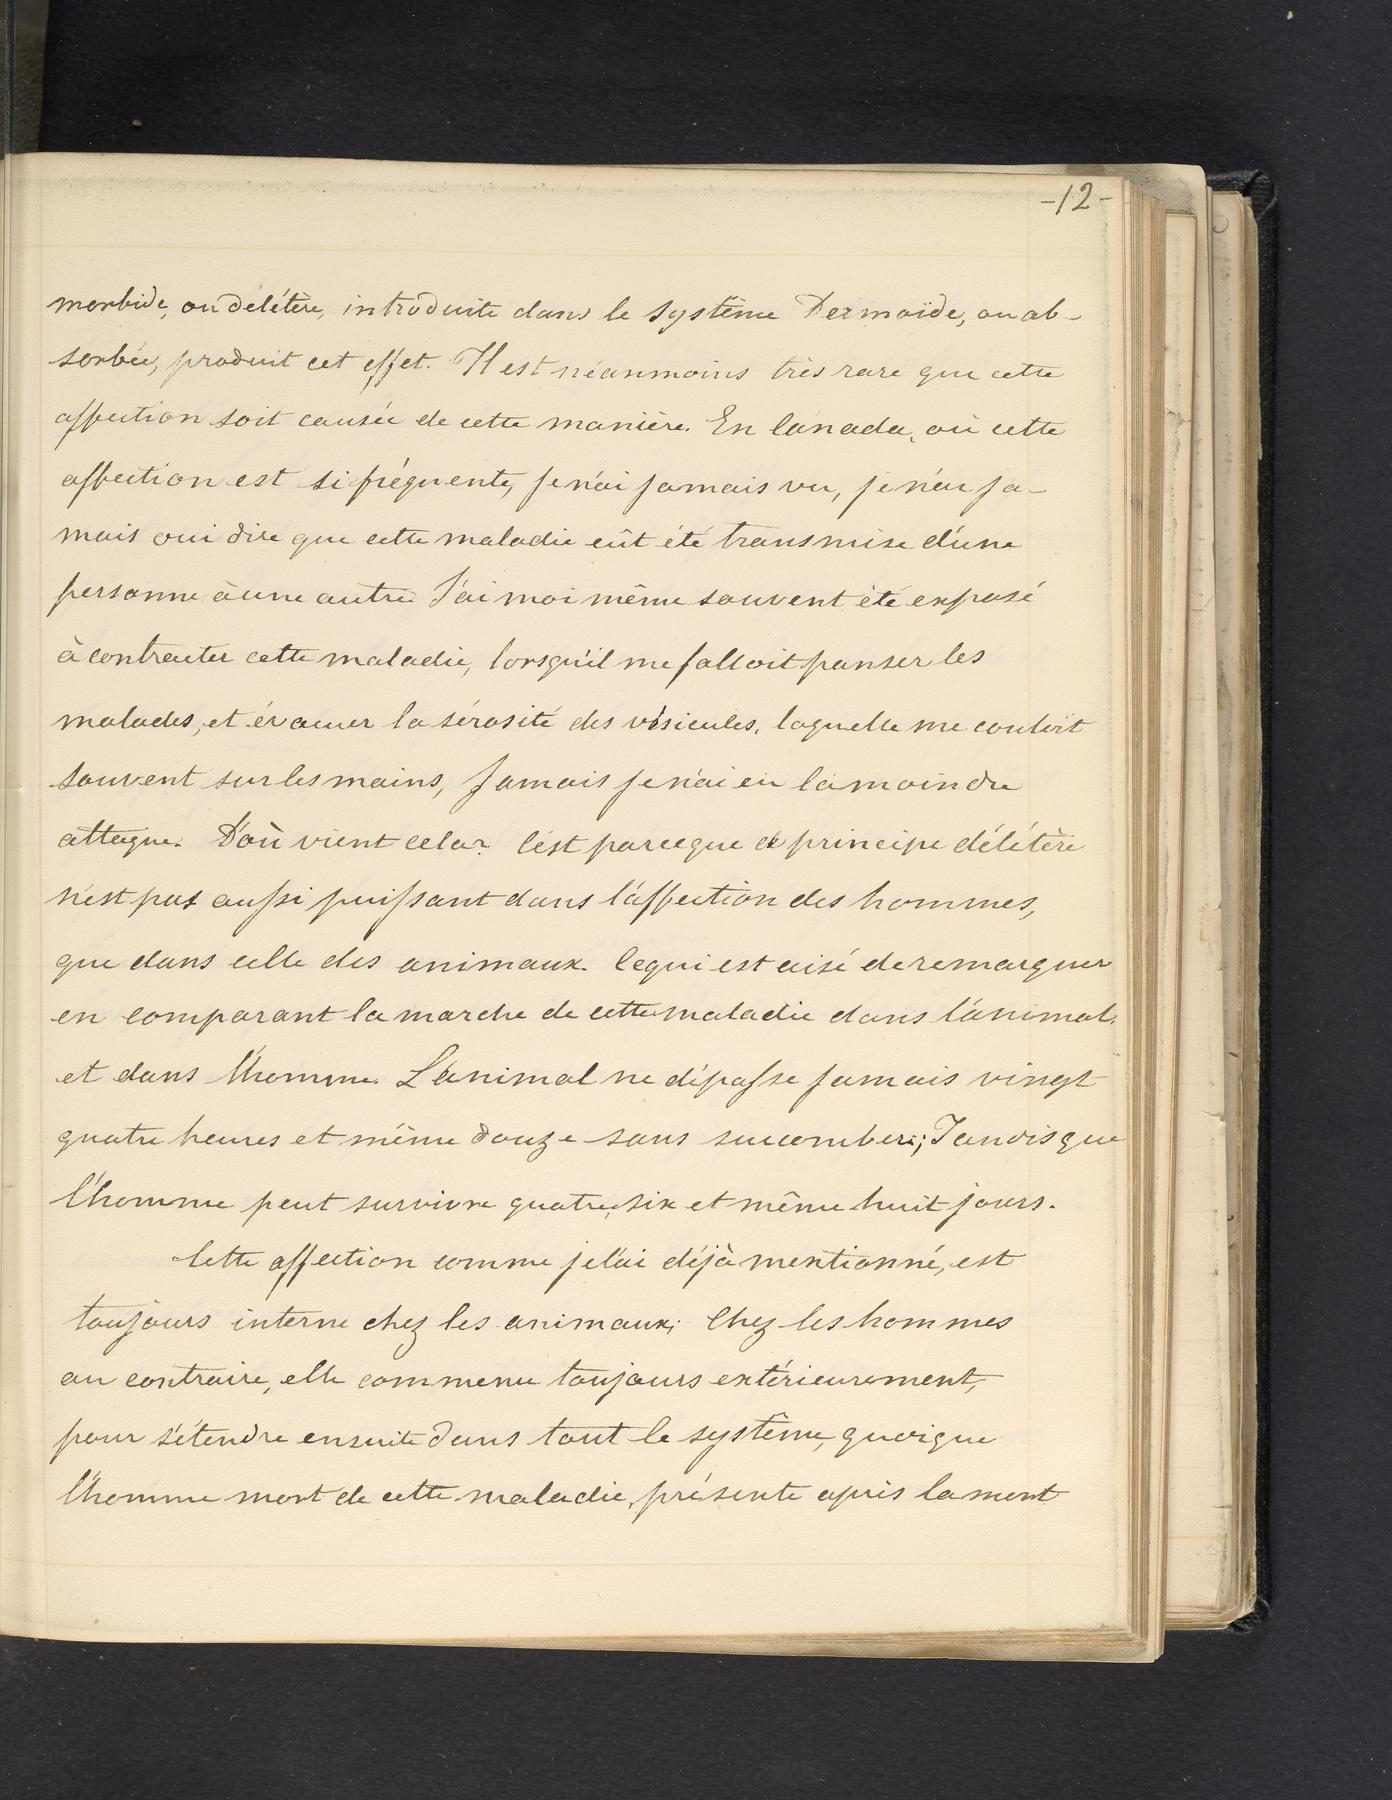 -12-
morbide, ou délétère, introduite dans le système Dermoïde, ou ab-
sorbée, produit cet effet. Il est néanmoins très rare que cette
affection soit causée de cette manière. En Canada, où cette
affection est si fréquente, je n'ai jamais vu, je n'ai ja-
mais oui dire que cette maladie eût été transmise d'une
personne à une autre. J'ai moi même souvent été exposé
à contracter cette maladie, lorsqu'il me falloit panser les
malades, et évacuer la sérosité des vésicules, laquelle me couloit
souvent sur les mains, Jamais je n'ai eu la moindre
attaque. D'où vient cela? C'est parceque ce principe délétère
n'est pas aussi puissant dans l'affection des hommes,
que dans celle des animaux. Ce qui est aisé de remarquer
en comparant la marche de cette maladie dans l'animal,
et dans l'homme. L'animal ne dépasse jamais vingt
quatre heures et même douze sans succomber; Tandis que
l'homme peut survivre quatre, six et même huit jours.
Cette affection comme je l'ai déjà mentionné, est
toujours interne chez les animaux; Chez les hommes
au contraire, elle commence toujours extérieurement,
pour s'étendre ensuite dans tout le système, quoique
l'homme mort de cette maladie, présente après la mort